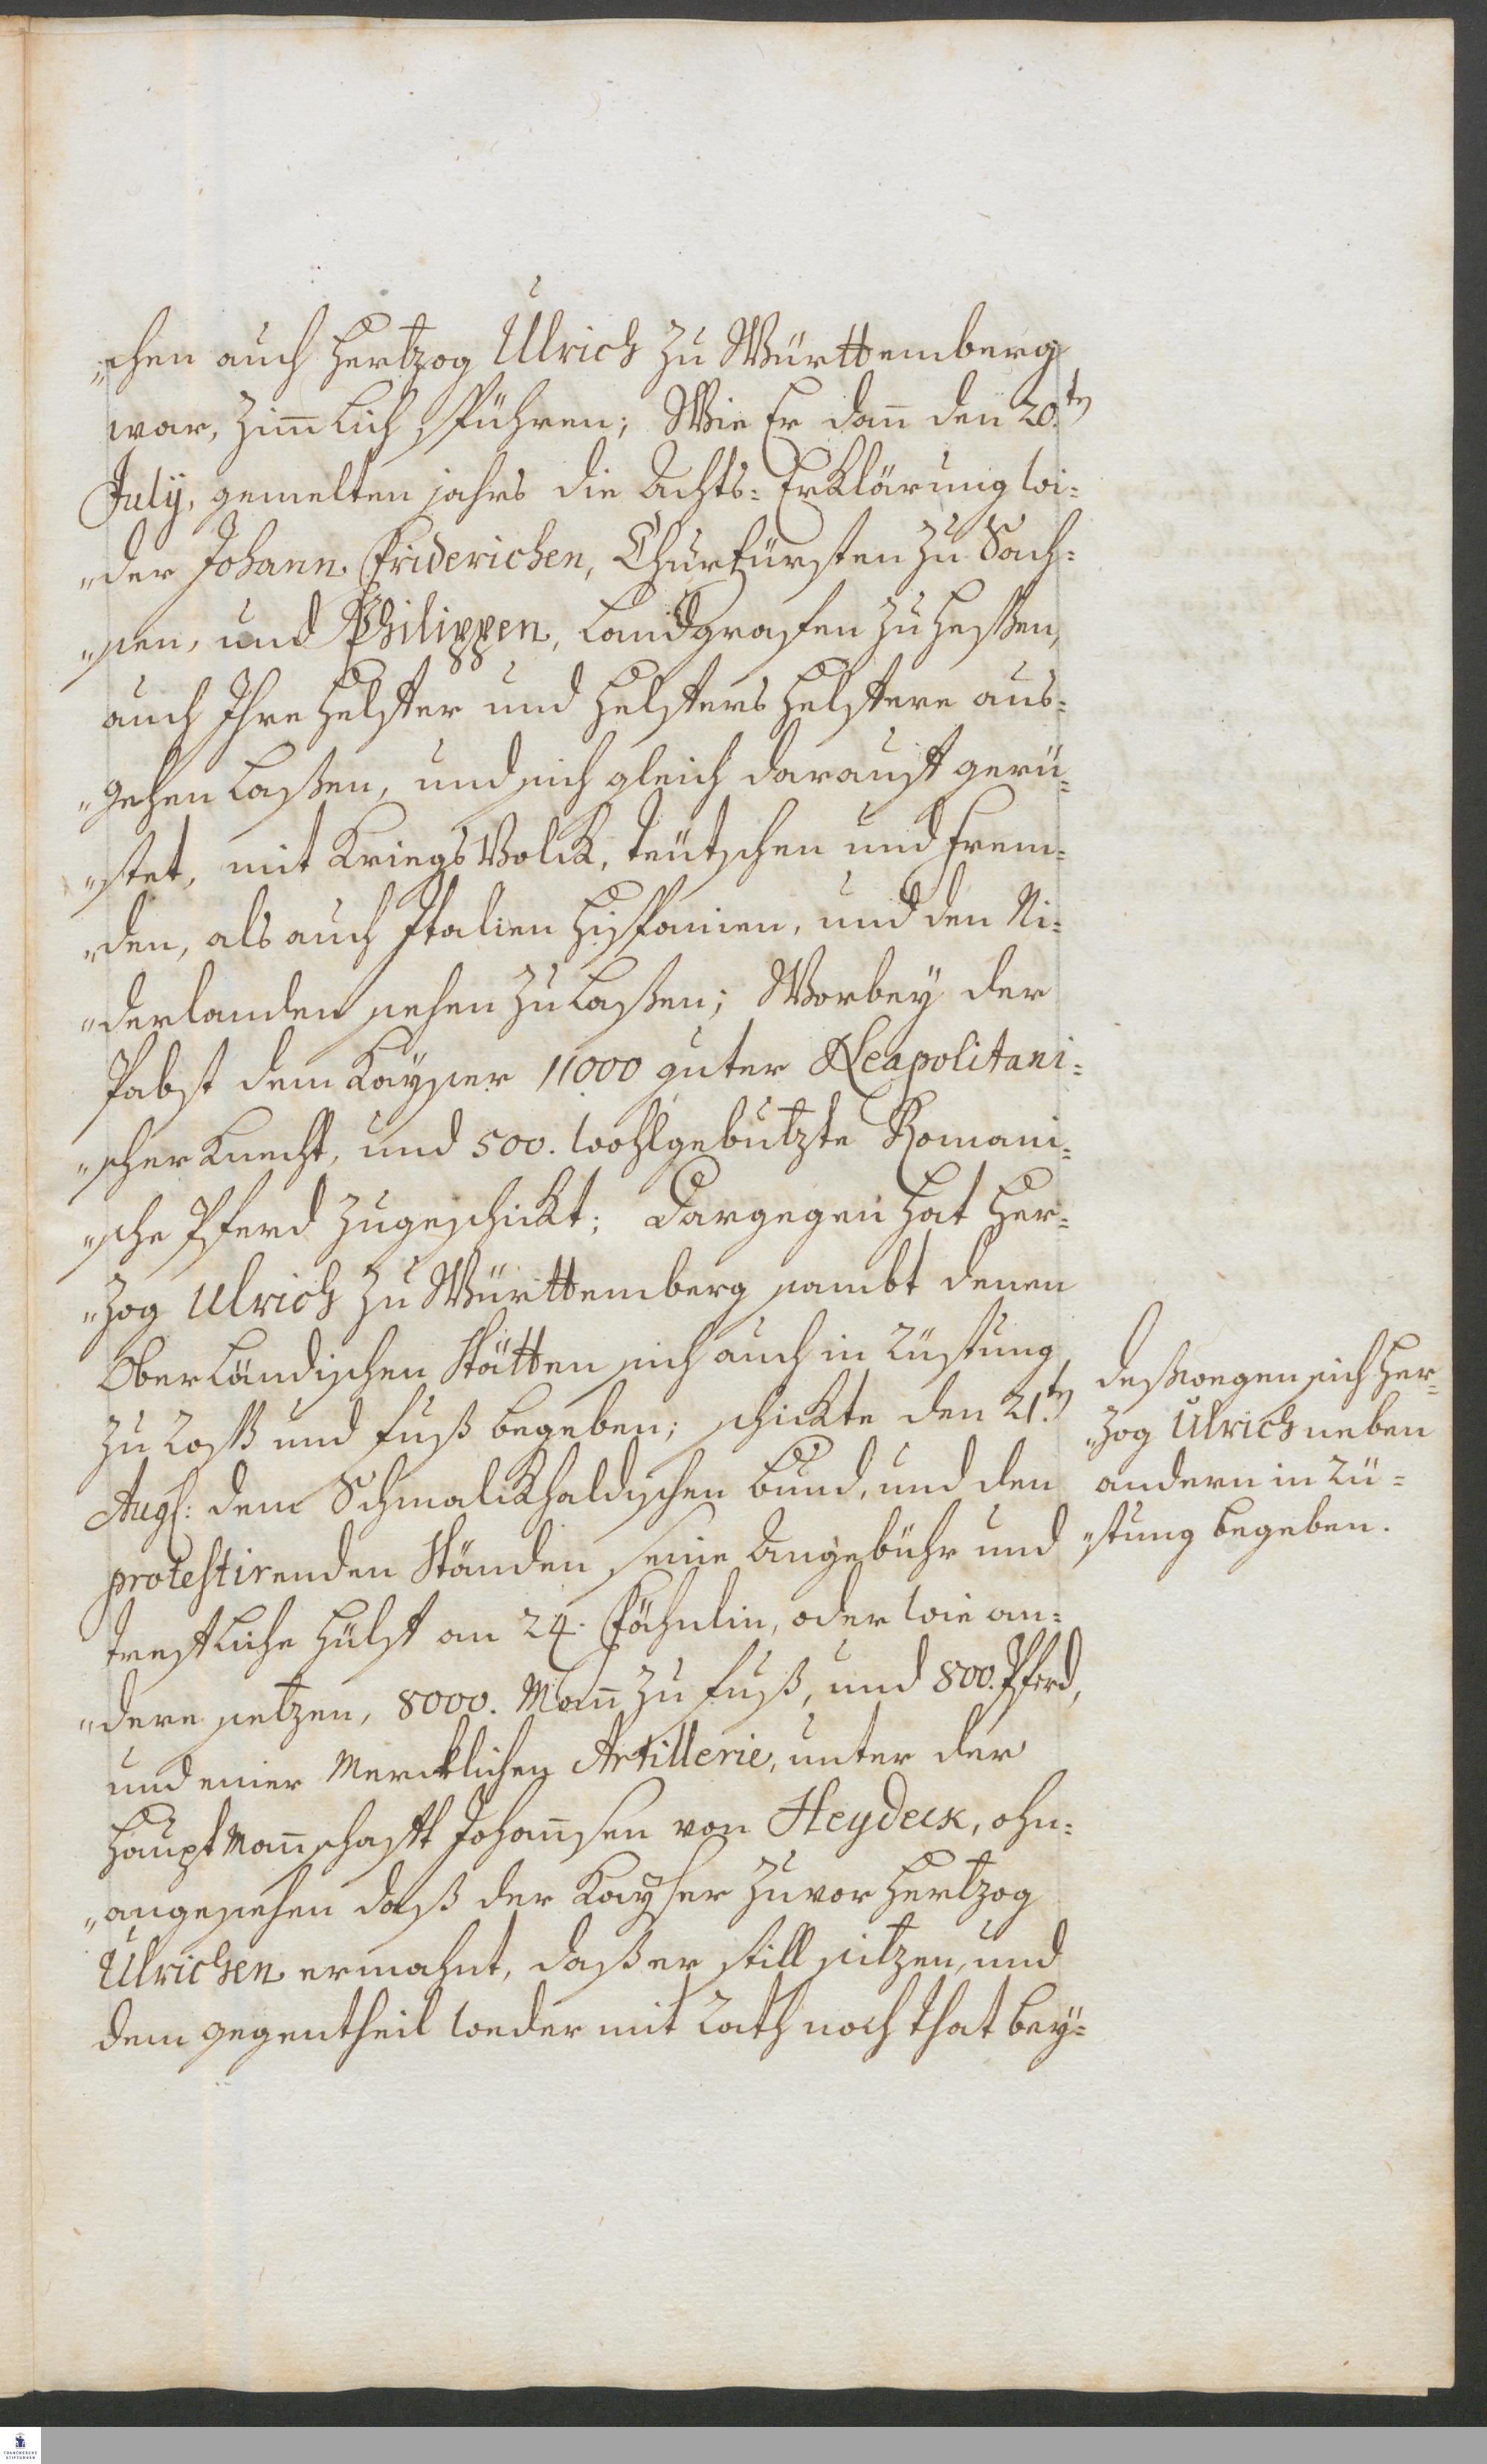 „chen auch Hertzog Ulrich zu Württemberg
war, zim̃lich spühren; Wie Er dañ den 20.ten
July, gemelten jahrs die Achts-Erklärung wi=
„der Johann Friderichen, Churfürsten zu Sach=
„sen, und Philippen, Landgrafen zu Heßen,
auch Ihre Helffer und Helffers Helffere aus=
„gehen laßen, und sich gleich darauff gerü=
„stet, mit KriegsVolck, teütschen und frem=
„den, als auch Italien Hispanien, und den Ni=
„derlanden sehen zu laßen; Worbey der
Pabst dem Kayser 11000 guter Neapolitani=
„scher Knecht, und 500. wohlgebutzte Romani=
„sche Pferd zugeschickt; Dargegen hat Her=
„zog Ulrich zu Württemberg sambt denen
Oberländischen Stätten sich auch in Rüstung
zu Roß und Fuß begeben; schickte den 21.ten
Aug: dem Schmalkhaldischen Bund, und den
protestirenden Ständen seine Angebühr und
treffliche Hülff an 24. Fähnlin, oder wie an=
„dere setzen, 8000. Mañ zu Fuß, und 800. Pferd,
und einer Mercklichen Artillerie, unter der
Hauptmañschafft Johañsen von Heydeck, ohn=
„angesehen daß der Kayser zuvor Hertzog
Ulrichen ermahnt, daß er still sitzen, und
dem gegentheil weder mit Rath noch that bey=
deßwegen sich Her=
„zog Ulrich neben
andern in Rü=
„stung begeben.
FRANCKESCHE
STIFTUNGEN